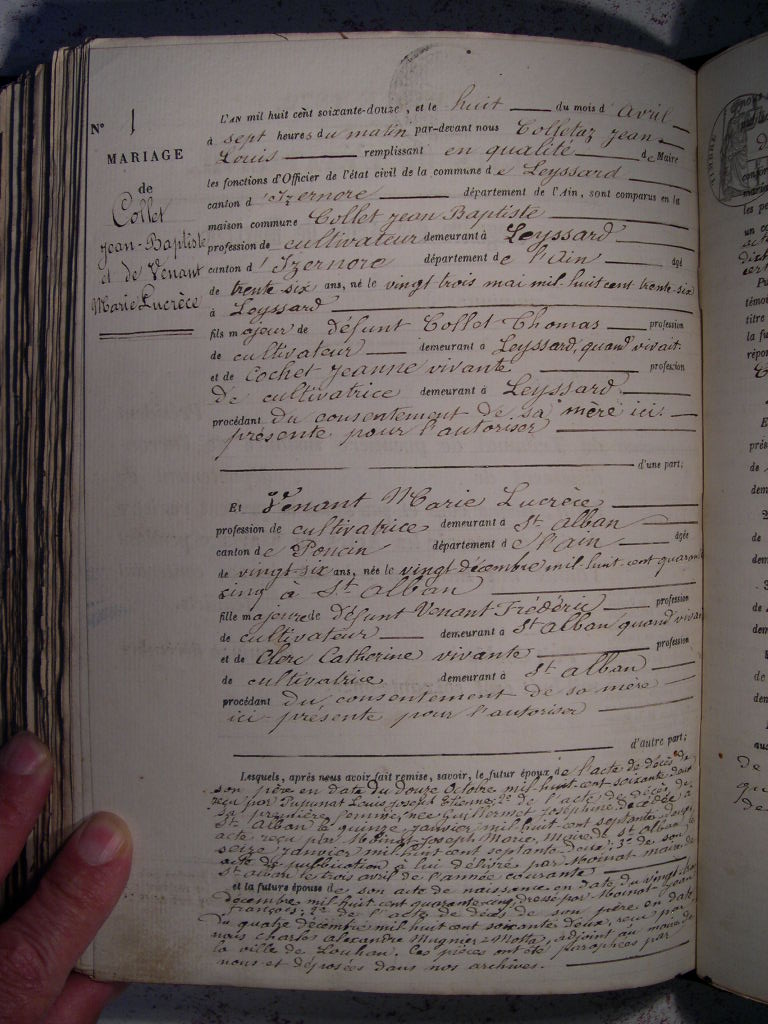 N° 1
MARIAGE
de
Collet
Jean-Baptiste
et de Venant
Marie Lucrèce
L'AN mil huit cent soixante-douze, et le huit du mois d'Avril
à sept heures du matin par-devant nous Colletaz Jean-
Louis remplissant en qualité de Maire
les fonctions d'Officier de l'état civil de la commune de Leyssard
canton d'Izernore département de l'Ain, sont comparus en la
maison commune Collet Jean Baptiste
profession de cultivateur demeurant à Leyssard
canton d'Izernore département de l'ain âgé
de trente six ans, né le vingt trois mai mil huit cent trente-six
à Leyssard
fils majeur de défunt Collet Thomas profession
de cultivateur demeurant à Leyssard, quand vivait
et de Cochet Jeanne vivante profession
de cultivatrice demeurant à Leyssard
procédant du consentement de sa mère ici
présente pour l'autoriser
d'une part;
Et Venant Marie Lucrèce
profession de cultivatrice demeurant à St alban
canton de Poncin département de l'ain âgée
de vingt-six ans, née le vingt décembre mil-huit-cent quarante
cinq à St alban
fille majeure de défunt Venant Frédéric profession
de cultivateur demeurant à St alban quand vivait
et de Clerc Catherine vivante profession
de cultivatrice demeurant à St alban
procédant du consentement de sa mère
ici-présente pour l'autoriser
d'autre part;
Lesquels, après nous avoir fait remise, savoir, le futur époux de l'acte de décès de
son père en date du douze Octobre mil huit-cent-soixante
reçu par Louis Joseph Etienne; 2° de l'acte de décès de
sa première femme, née Guillermet Joséphine décédée à
St Alban le quinze janvier, mil huit cent septante
acte reçu par Moinat Joseph Marie, Maire de St alban le
seize janvier mil huit cent septante deux; 3° de son
acte de publication à lui délivré par Moinat maire de
St alban le trois avril de l'année courante
et la future épouse de son acte de naissance en date du vingt
décembre mil huit cent quarante cinq dressé par Moinat Jean
François; 2° de l'acte de décès de son père en date
du quatre décembre mil huit cent soixante deux, reçu par
nous charles alexandre Mugnier adjoint au maire de
la ville de Louhan. Ces pièces ont été paraphées par
nous et déposées dans nos archives.